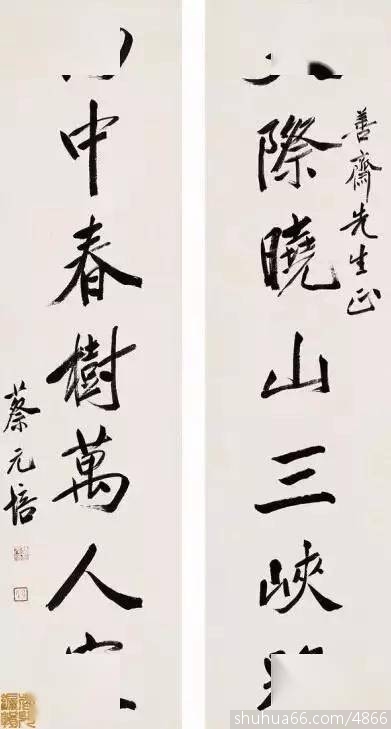 善齋先生正
際曉山三峽
中春樹萬人
蔡元培
shuhua66.com/4866